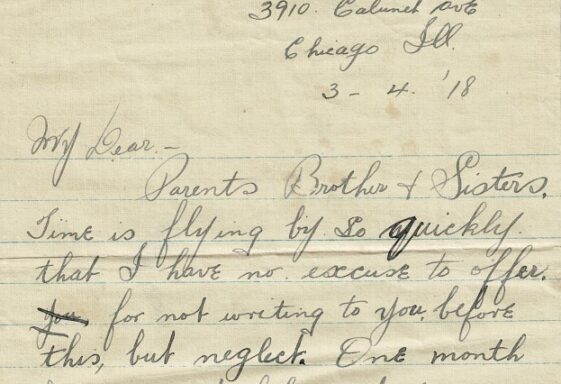 3910. Calumet ave
Chicago Ill.
3 - 4. '18
My Dear.-
Parents Brother & Sisters.
Time is flying by so quickly.
that I have no. excuse to offer.
you, for not writing to you, before
this, but neglect. One month